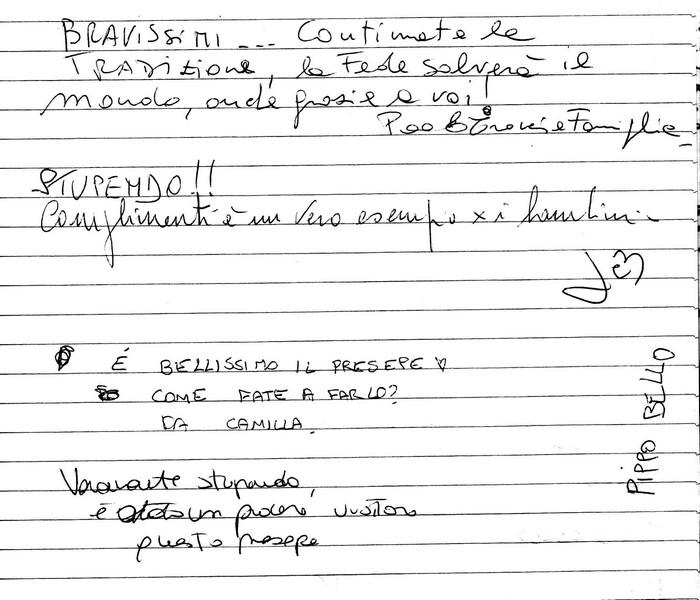 BRAVISSIMI ... Continuate la
TRADIZIONE, la Fede salverà il
mondo, anche grazie a voi!
e Famiglia
STUPENDO!!
Complimenti è un vero esempo x i bambini
É BELLISSIMO IL PRESEPE ♡
COME FATE A FARLO?
DA CAMILLA.
PIPPO BELLO
Veramente stupendo,
è un piacere visitare
questo presepe